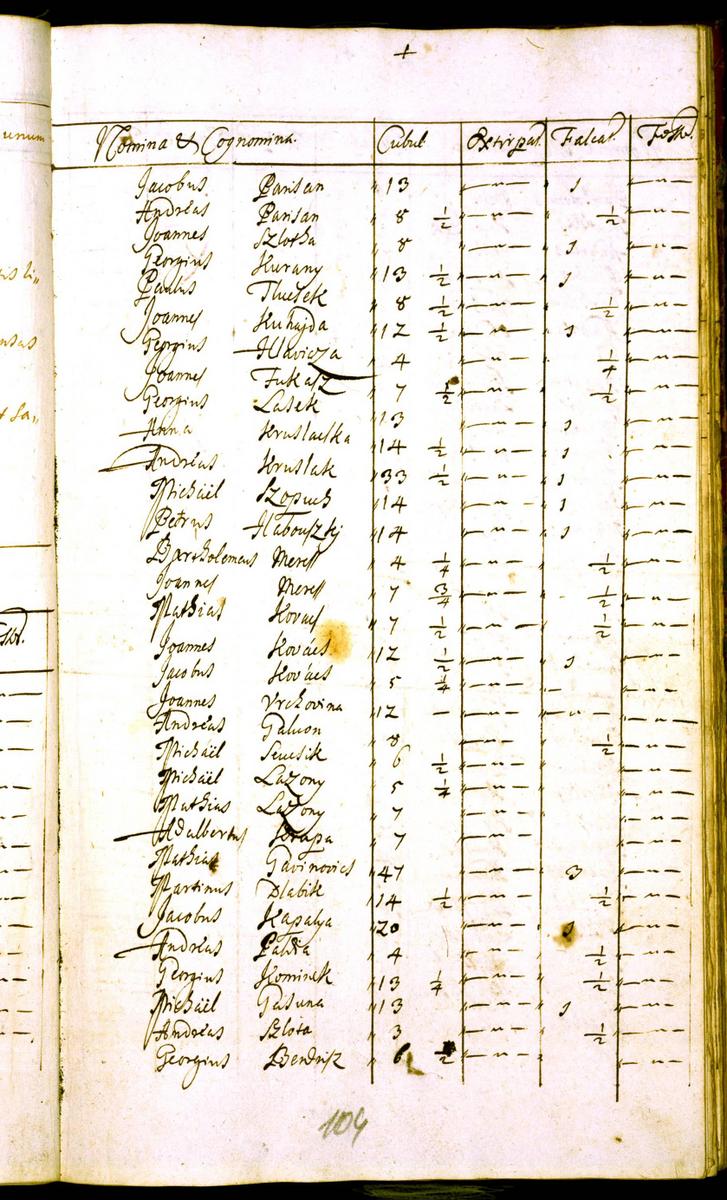 unum
+
Nomina & Cognomina. Cubul Extirpat. Falcat. Fosso.
Jacobus Parisan " 13 "—"— 1 "—"—
Andreas Parisan " 8 ½ "—"— " ½ "—"—
Joannes Szlotha " 8 "—"— " 1 "—"—
Georgius Hurany " 13 ½ "—"— " 1 "—"—
Paulus Tlucsek " 8 ½ "—"— " ½ "—"—
Joannes Kuhajda " 12 ½ "—"— " 1 "—"—
Georgius Hlavicza " 4 "—"— " ¼ "—"—
Joannes Fukasz " 7 ½ "—"— " ½ "—"—
Georgius Lasek " 13 "—"— " 1 "—"—
Anna Hruslacska " 14 ½ "—"— " 1 "—"—
Andreas Hruslak " 33 ½ "—"— " 1 "—"—
Michaël Szopuch " 14 "—"— " 1 "—"—
Petrus Habouszkj " 14 "—"— " 1 "—"—
Bartholomeus Meress " 4 ¼ "—"— " ½ "—"—
Joannes Meress " 7 ¾ "—"— " ½ "—"—
Mathias Kovacs " 7 ½ "—"— " ½ "—"—
Joannes Kovács " 12 ½ "—"— " 1 "—"—
Jacobus Kovács " 5 ¼ "—"— — "—"—
Joannes Vrchovina " 12 — "—"— "—"— "—"—
Andreas Galuon " 8 "—"— " ½ "—"—
Michaël Seucsik " 6 ½ "—"— "—"—
Michaël Lazony " 5 ¼ "—"— "—"—
Mathias Lazony " 7 "—"— "—"—
Adalbertus Krupa " 7 "—"— "—"—
Mathias Gavinovics " 47 "—"— " 3 "—"—
Martinus Dlabik " 14 ½ "—"— " ½ "—"—
Jacobus Kapalya " 20 "—"— " 1 "—"—
Andreas " 4 "—"— " ½ "—"—
Georgius Hominek " 13 ¼ "—"— " ½ "—"—
Michaël Gasuna " 13 "—"— " 1 "—"—
Andreas Szlota " 3 "—"— " ½ "—"—
Georgius Bendrisz " 6 ½ "—"— "—"—
104